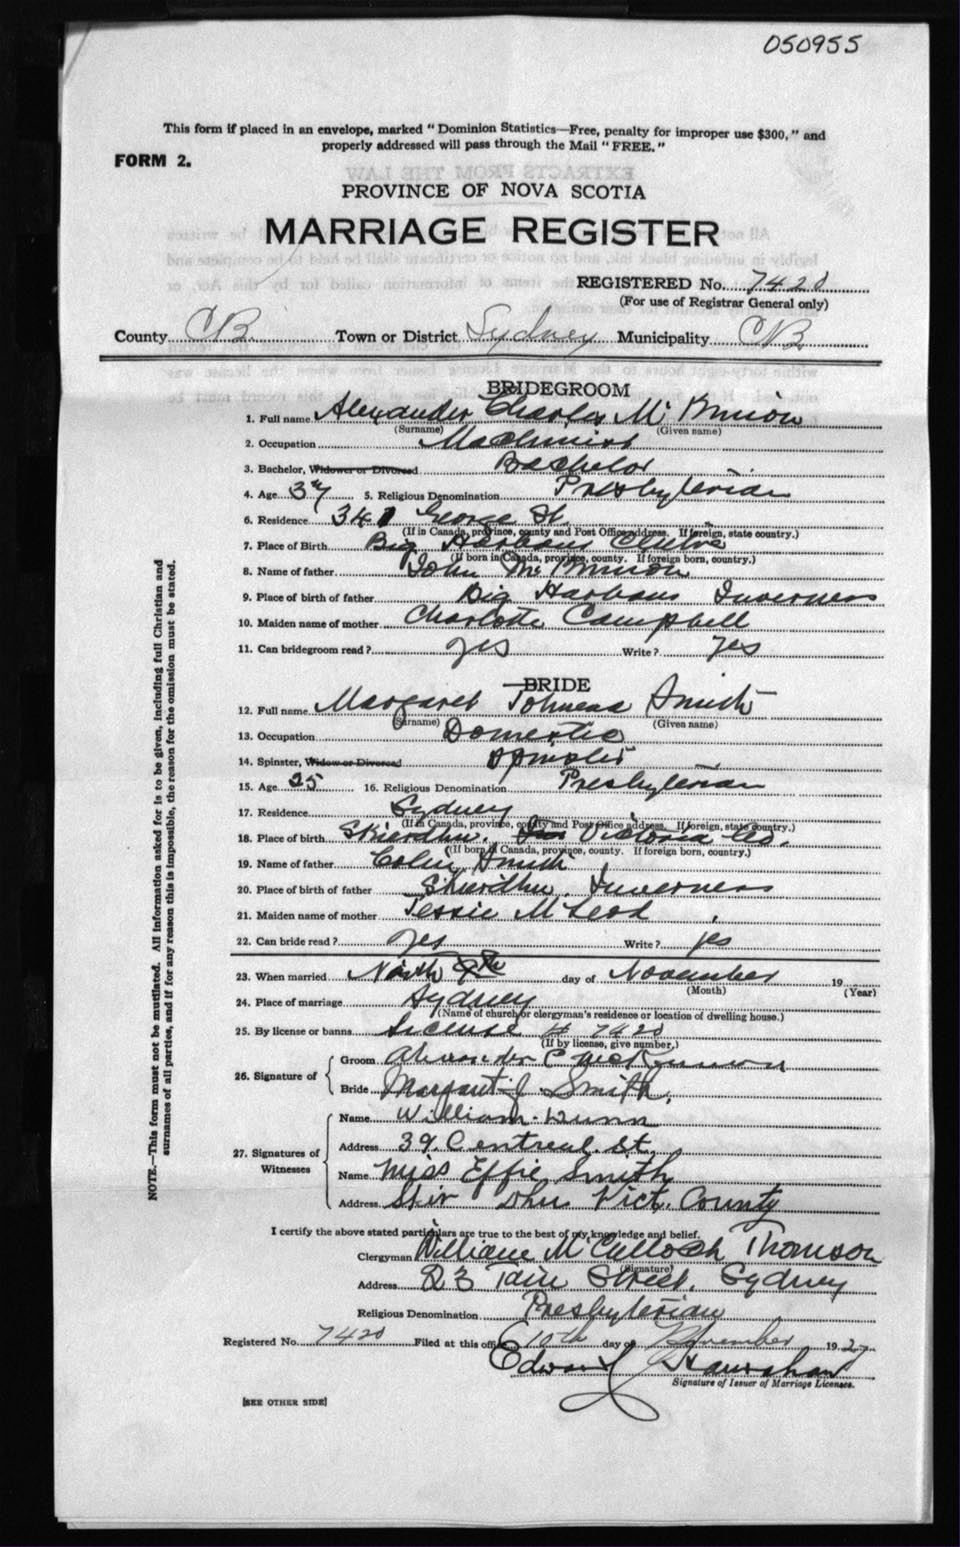 050955
This form if placed in an envelope, marked "Dominion Statistics—Free, penalty for improper use $300," and
properly addressed will pass through the Mail "FREE."
FORM 2.
PROVINCE OF NOVA SCOTIA
MARRIAGE REGISTER
REGISTERED No. 7420
(For use of Registrar General only)
County CB Town or District Sydney Municipality CB
BRIDEGROOM
1. Full name Alexander Charles Mc
(Surname) (Given name)
2. Occupation Machinist
3. Bachelor, Widower or Divorced Bachelor
4. Age 37 5. Religious Denomination Presbyterian
6. Residence 341 George St.
(If in Canada, province, county and Post Office address. If foreign, state country.)
7. Place of Birth Big Harbour
(If born in Canada, province, county. If foreign born, country.)
8. Name of father John Mc
9. Place of birth of father Big Harbour Inverness
10. Maiden name of mother Charlotte Campbell
11. Can bridegroom read? yes Write? yes
BRIDE
12. Full name Margaret Smith
(Surname) (Given name)
13. Occupation Domestic
14. Spinster, Widow or Divorced
15. Age 25 16. Religious Denomination Presbyterian
17. Residence Sydney
(If in Canada, province, county and Post Office address. If foreign, state country.)
18. Place of birth Victoria Co.
(If born in Canada, province, county. If foreign born, country.)
19. Name of father Colin Smith
20. Place of birth of father Inverness
21. Maiden name of mother Jessie McLeod
22. Can bride read? yes Write? yes
23. When married Ninth 9th day of November 19
(Month) (Year)
24. Place of marriage Sydney
(Name of church or clergyman's residence or location of dwelling house.)
25. By license or banns License # 7420
(If by license, give number.)
26. Signature of
Groom Alexander C McKinnon
Bride Margaret J Smith.
27. Signatures of Witnesses
Name William Dunn
Address 39. Centreal. St.
Name Miss Effie Smith
Address Skir Dhu Vict. County
I certify the above stated particulars are true to the best of my knowledge and belief.
Clergyman William McCulloch Thomson
(Signature)
Address 23 Street. Sydney
Religious Denomination Presbyterian
Registered No. 7420 Filed at this office 10th day of November 1927
Edward
Signature of Issuer of Marriage Licenses.
[SEE OTHER SIDE]
NOTE.—This form must not be mutilated. All information asked for is to be given, including full Christian and
surnames of all parties, and if for any reason this is impossible, the reason for the omission must be stated.